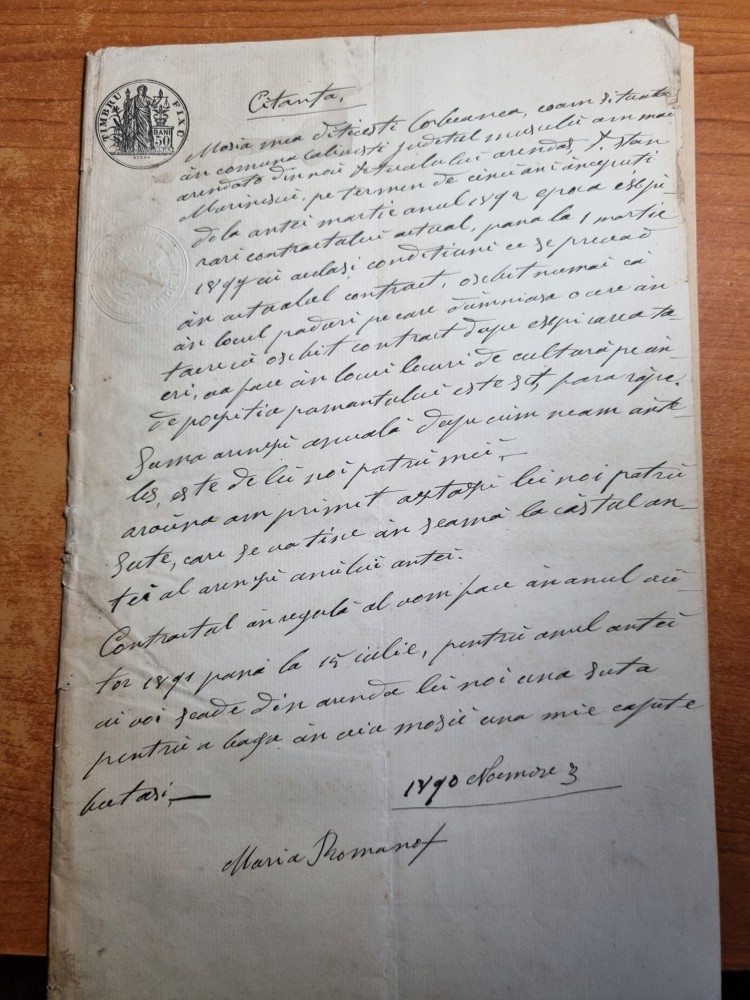 TIMBRU FIX
BANI
50
Citanta,
Mosia mea diticesti Corbeanca, cam situata
in comuna Calinesti judetul muscelu am mai
arendato din noi actualului arendas, D. stan
Marinescu, pe termen de cinci ani inceputi
de la antei martie anul 1892 epoca espi
rari contractului actual, pana la 1 martie
1897 cu aceleasi conditiuni ce se prevad
in actualul contract, osebit numai că
in locul paduri pe care dumniasa o cere in
taere cu osebit contract dupe espirarea
eri, va face in locui locuri de cultură pe
de positia pamantului este
Suma arenzi anuală dupe cum neam
les, este de lei noi patru mii,
arvuna am primit astazi lei noi patru
Sute, care se va tine in seamă la câstul an-
tei al arenzi anului antei.
Contractul in regulă al vom face in anul vii-
tor 1891 pană la 15 iulie, pentru anul antei
ai voi scade din arenda lei noi una suta
pentru a baga in via mosii una mie capute
butasi,
1890 Noemvre 3
Maria Romanof